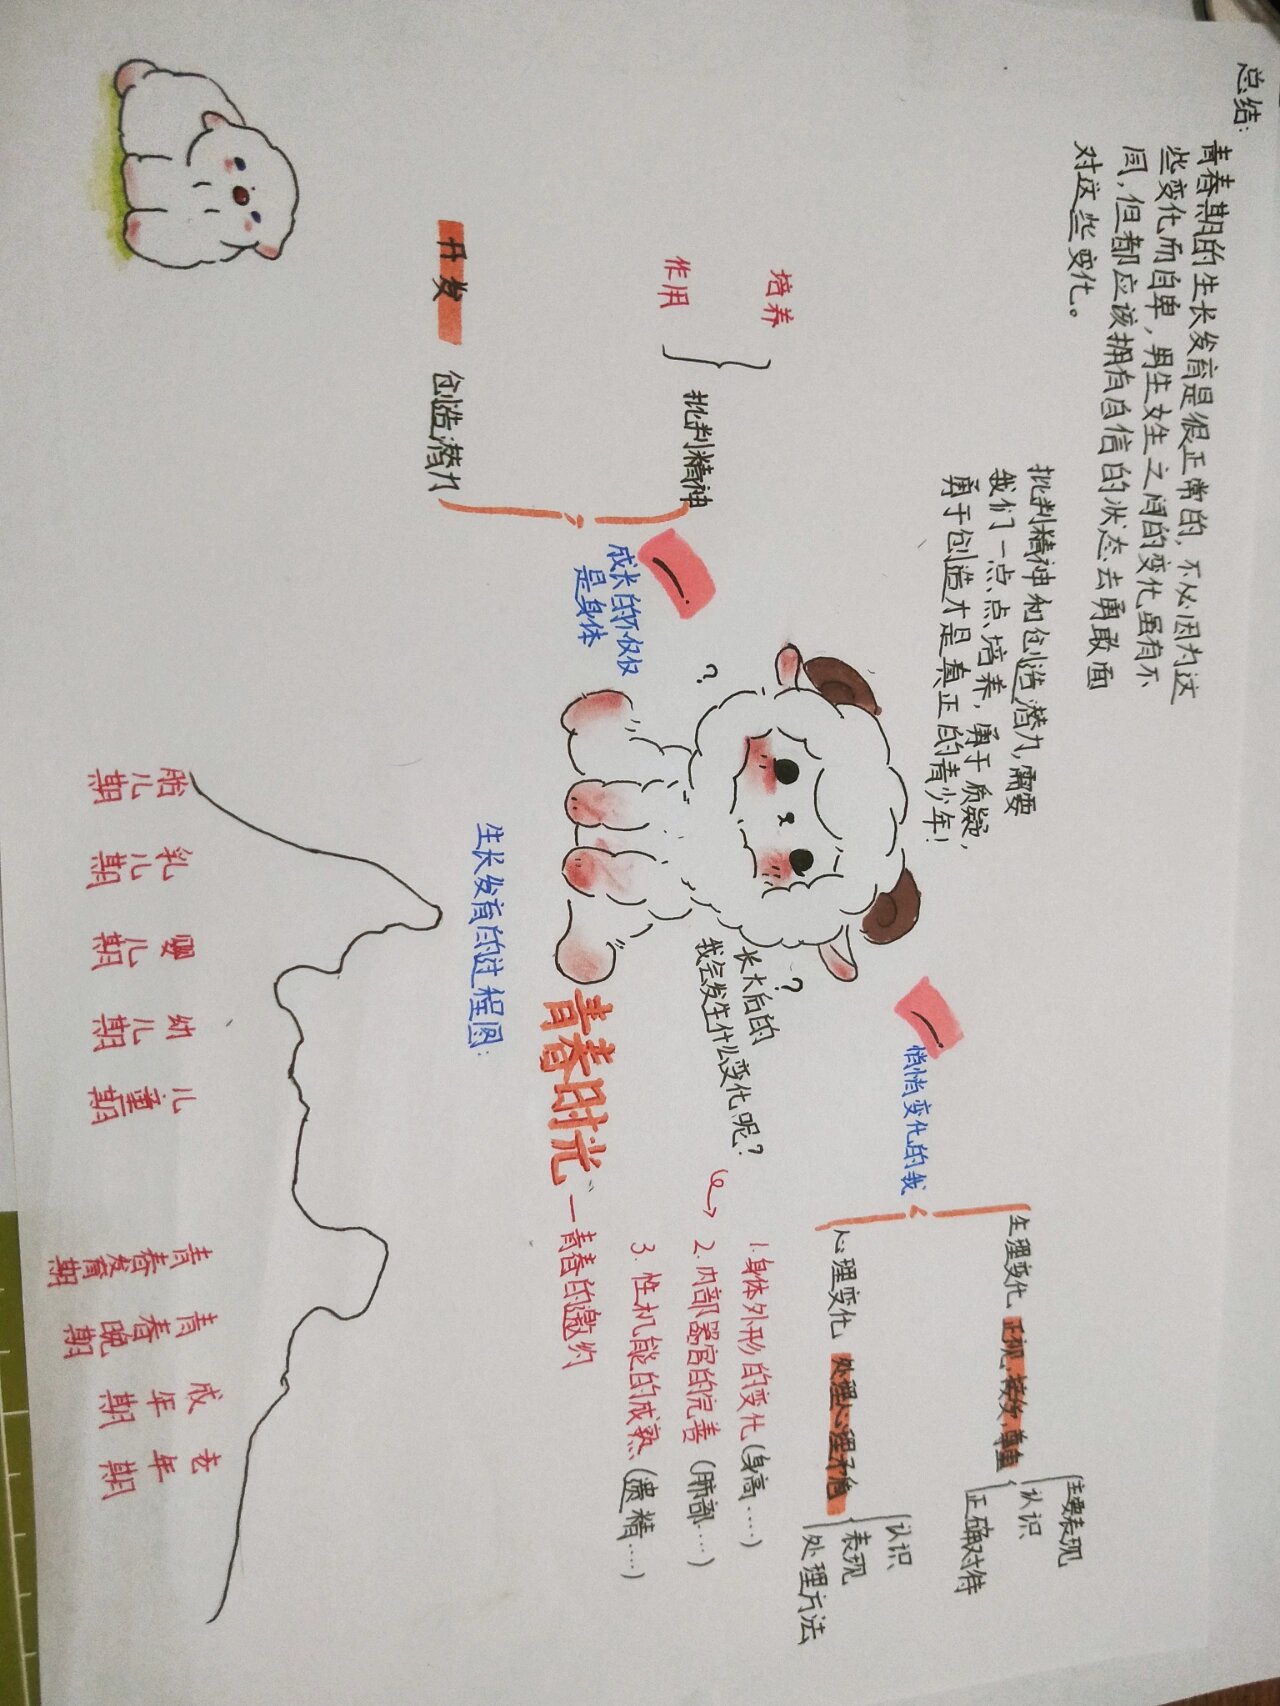 总结:
青春期的生长发育是很正常的, 不必因为这
些变化而自卑, 男生女生之间的变化虽有不
同, 但都应该拥有自信的状态去勇敢面
对这些变化。
批判精神和创造潜力, 需要
我们一点点培养, 勇于质疑,
勇于创造才是真正的青少年!
培养
作用
批判精神
开发 创造潜力
成长的不仅仅
是身体
?
?
长大后的
我会发生什么变化呢?
悄悄变化的我
生理变化 正视、接纳、尊重
主要表现
认识
正确对待
心理变化 处理心理矛盾
认识
表现
处理方法
1.身体外形的变化(身高……)
2.内部器官的完善 (肺部…)
3.性机能的成熟 (遗精…)
青春时光 — 青春的邀约
生长发育的过程图:
胎儿期
乳儿期
婴儿期
幼儿期
儿童期
青春发育期
青春晚期
成年期
老年期